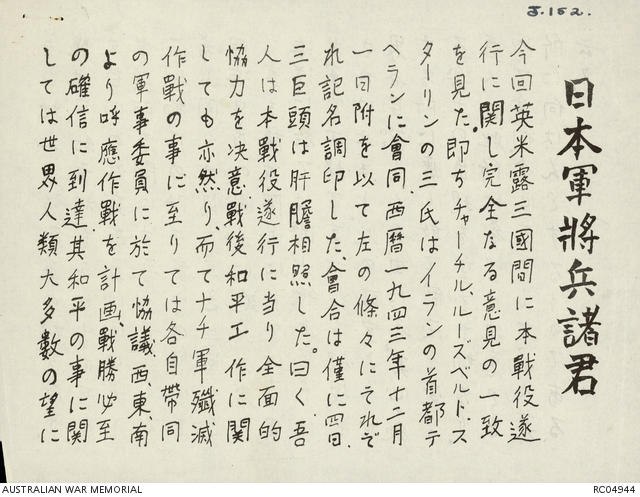 J.152.
日本軍將兵諸君
今回英米露三國間に本戰役遂
行に関し完全なる意見の一致
を見た。即ちチャーチル、ルーズベルト、ス
ターリンの三氏はイランの首都テ
ヘランに會同、西暦一九四三年十二月
一日附を以て左の條々にてそれぞ
れ記名調印した。會合は僅に四日、
三巨頭は肝膽相照した。曰く、吾
人は本戰役遂行に当り全面的
協力を決意、戰後和平工作に関
しても亦然り、而てナチ軍殲滅
作戰の事に至りては各自帶同
の軍事委員に於て協議、西、東、南
より呼應作戰を計画、戰勝必至
の確信に到達、其和平の事に関
しては世界人類大多數の望に
AUSTRALIAN WAR MEMORIAL
RC04944